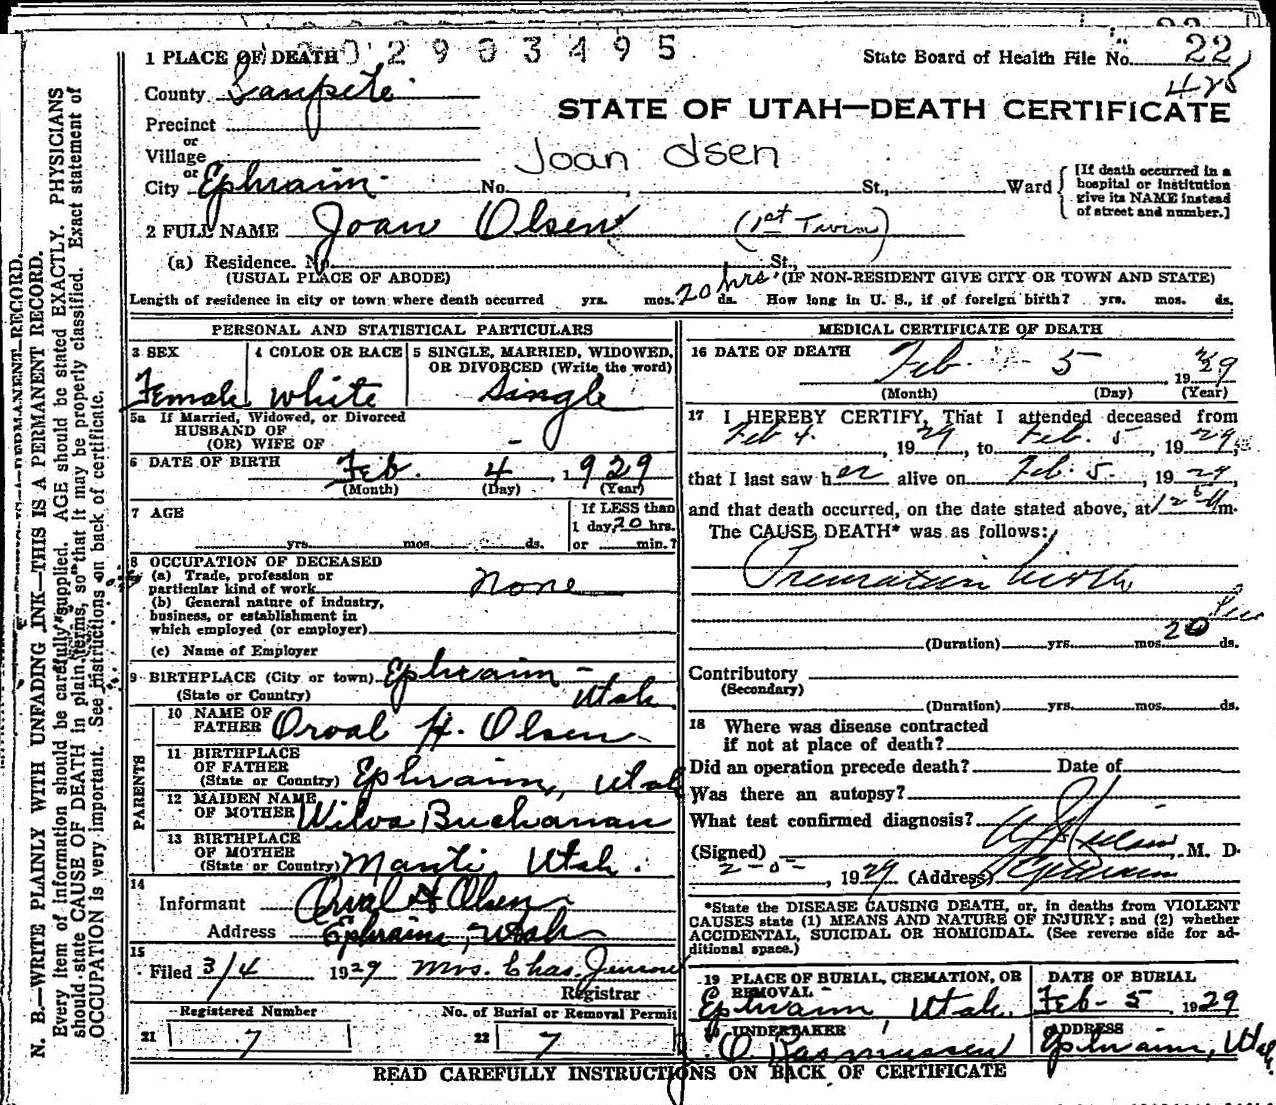 0 0 2 9 0 3 4 9 5
1 PLACE OF DEATH
State Board of Health File No. 22
428
County Sanpete
STATE OF UTAH—DEATH CERTIFICATE
Precinct
or
Village
Joan Olsen
or
City Ephraim No. , St., Ward
[If death occurred in a
hospital or institution
give its NAME instead
of street and number.]
2 FULL NAME Joan Olsen (1st Twin)
(a) Residence. No. St.,
(USUAL PLACE OF ABODE) (IF NON-RESIDENT GIVE CITY OR TOWN AND STATE)
Length of residence in city or town where death occurred yrs. mos. 20 hrs. ds. How long in U. S., if of foreign birth? yrs. mos. ds.
PERSONAL AND STATISTICAL PARTICULARS
3 SEX
Female
4 COLOR OR RACE
White
5 SINGLE, MARRIED, WIDOWED,
OR DIVORCED (Write the word)
Single
5a If Married, Widowed, or Divorced
HUSBAND OF
(OR) WIFE OF -
6 DATE OF BIRTH Feb. 4, 1929
(Month) (Day) (Year)
7 AGE
yrs. mos. ds.
If LESS than
1 day, 20 hrs.
or min.?
8 OCCUPATION OF DECEASED
(a) Trade, profession or
particular kind of work None
(b) General nature of industry,
business, or establishment in
which employed (or employer)
(c) Name of Employer
9 BIRTHPLACE (City or town) Ephraim -
(State or Country) Utah.
PARENTS
10 NAME OF
FATHER Orval H. Olsen
11 BIRTHPLACE
OF FATHER
(State or Country) Ephraim, Utah
12 MAIDEN NAME
OF MOTHER Wilva Buchanan
13 BIRTHPLACE
OF MOTHER
(State or Country) Manti Utah.
14
Informant Orval H Olsen
Address Ephraim, Utah
15
Filed 3/4 1929 Mrs. Chas. Jenson
Registrar
Registered Number
21 7
No. of Burial or Removal Permit
22 7
MEDICAL CERTIFICATE OF DEATH
16 DATE OF DEATH Feb. 5, 1929
(Month) (Day) (Year)
17 I HEREBY CERTIFY, That I attended deceased from
Feb 4., 1929, to Feb. 5, 1929,
that I last saw her alive on Feb. 5, 1929,
and that death occurred, on the date stated above, at m.
The CAUSE DEATH* was as follows:
Premature birth
(Duration) yrs. mos. 20 ds.
Contributory
(Secondary)
(Duration) yrs. mos. ds.
18 Where was disease contracted
if not at place of death?
Did an operation precede death? Date of
Was there an autopsy?
What test confirmed diagnosis?
(Signed) , M. D.
, 1929 (Address) Ephraim
*State the DISEASE CAUSING DEATH, or, in deaths from VIOLENT
CAUSES state (1) MEANS AND NATURE OF INJURY; and (2) whether
ACCIDENTAL, SUICIDAL OR HOMICIDAL. (See reverse side for ad-
ditional space.)
19 PLACE OF BURIAL, CREMATION, OR
REMOVAL
Ephraim Utah.
DATE OF BURIAL
Feb - 5 1929
UNDERTAKER
O Rasmussen
ADDRESS
Ephraim, Utah.
READ CAREFULLY INSTRUCTIONS ON BACK OF CERTIFICATE
N. B.—WRITE PLAINLY WITH UNFADING INK—THIS IS A PERMANENT RECORD.
Every item of information should be carefully supplied. AGE should be stated EXACTLY. PHYSICIANS
should state CAUSE OF DEATH in plain terms, so that it may be properly classified. Exact statement of
OCCUPATION is very important. See instructions on back of certificate.